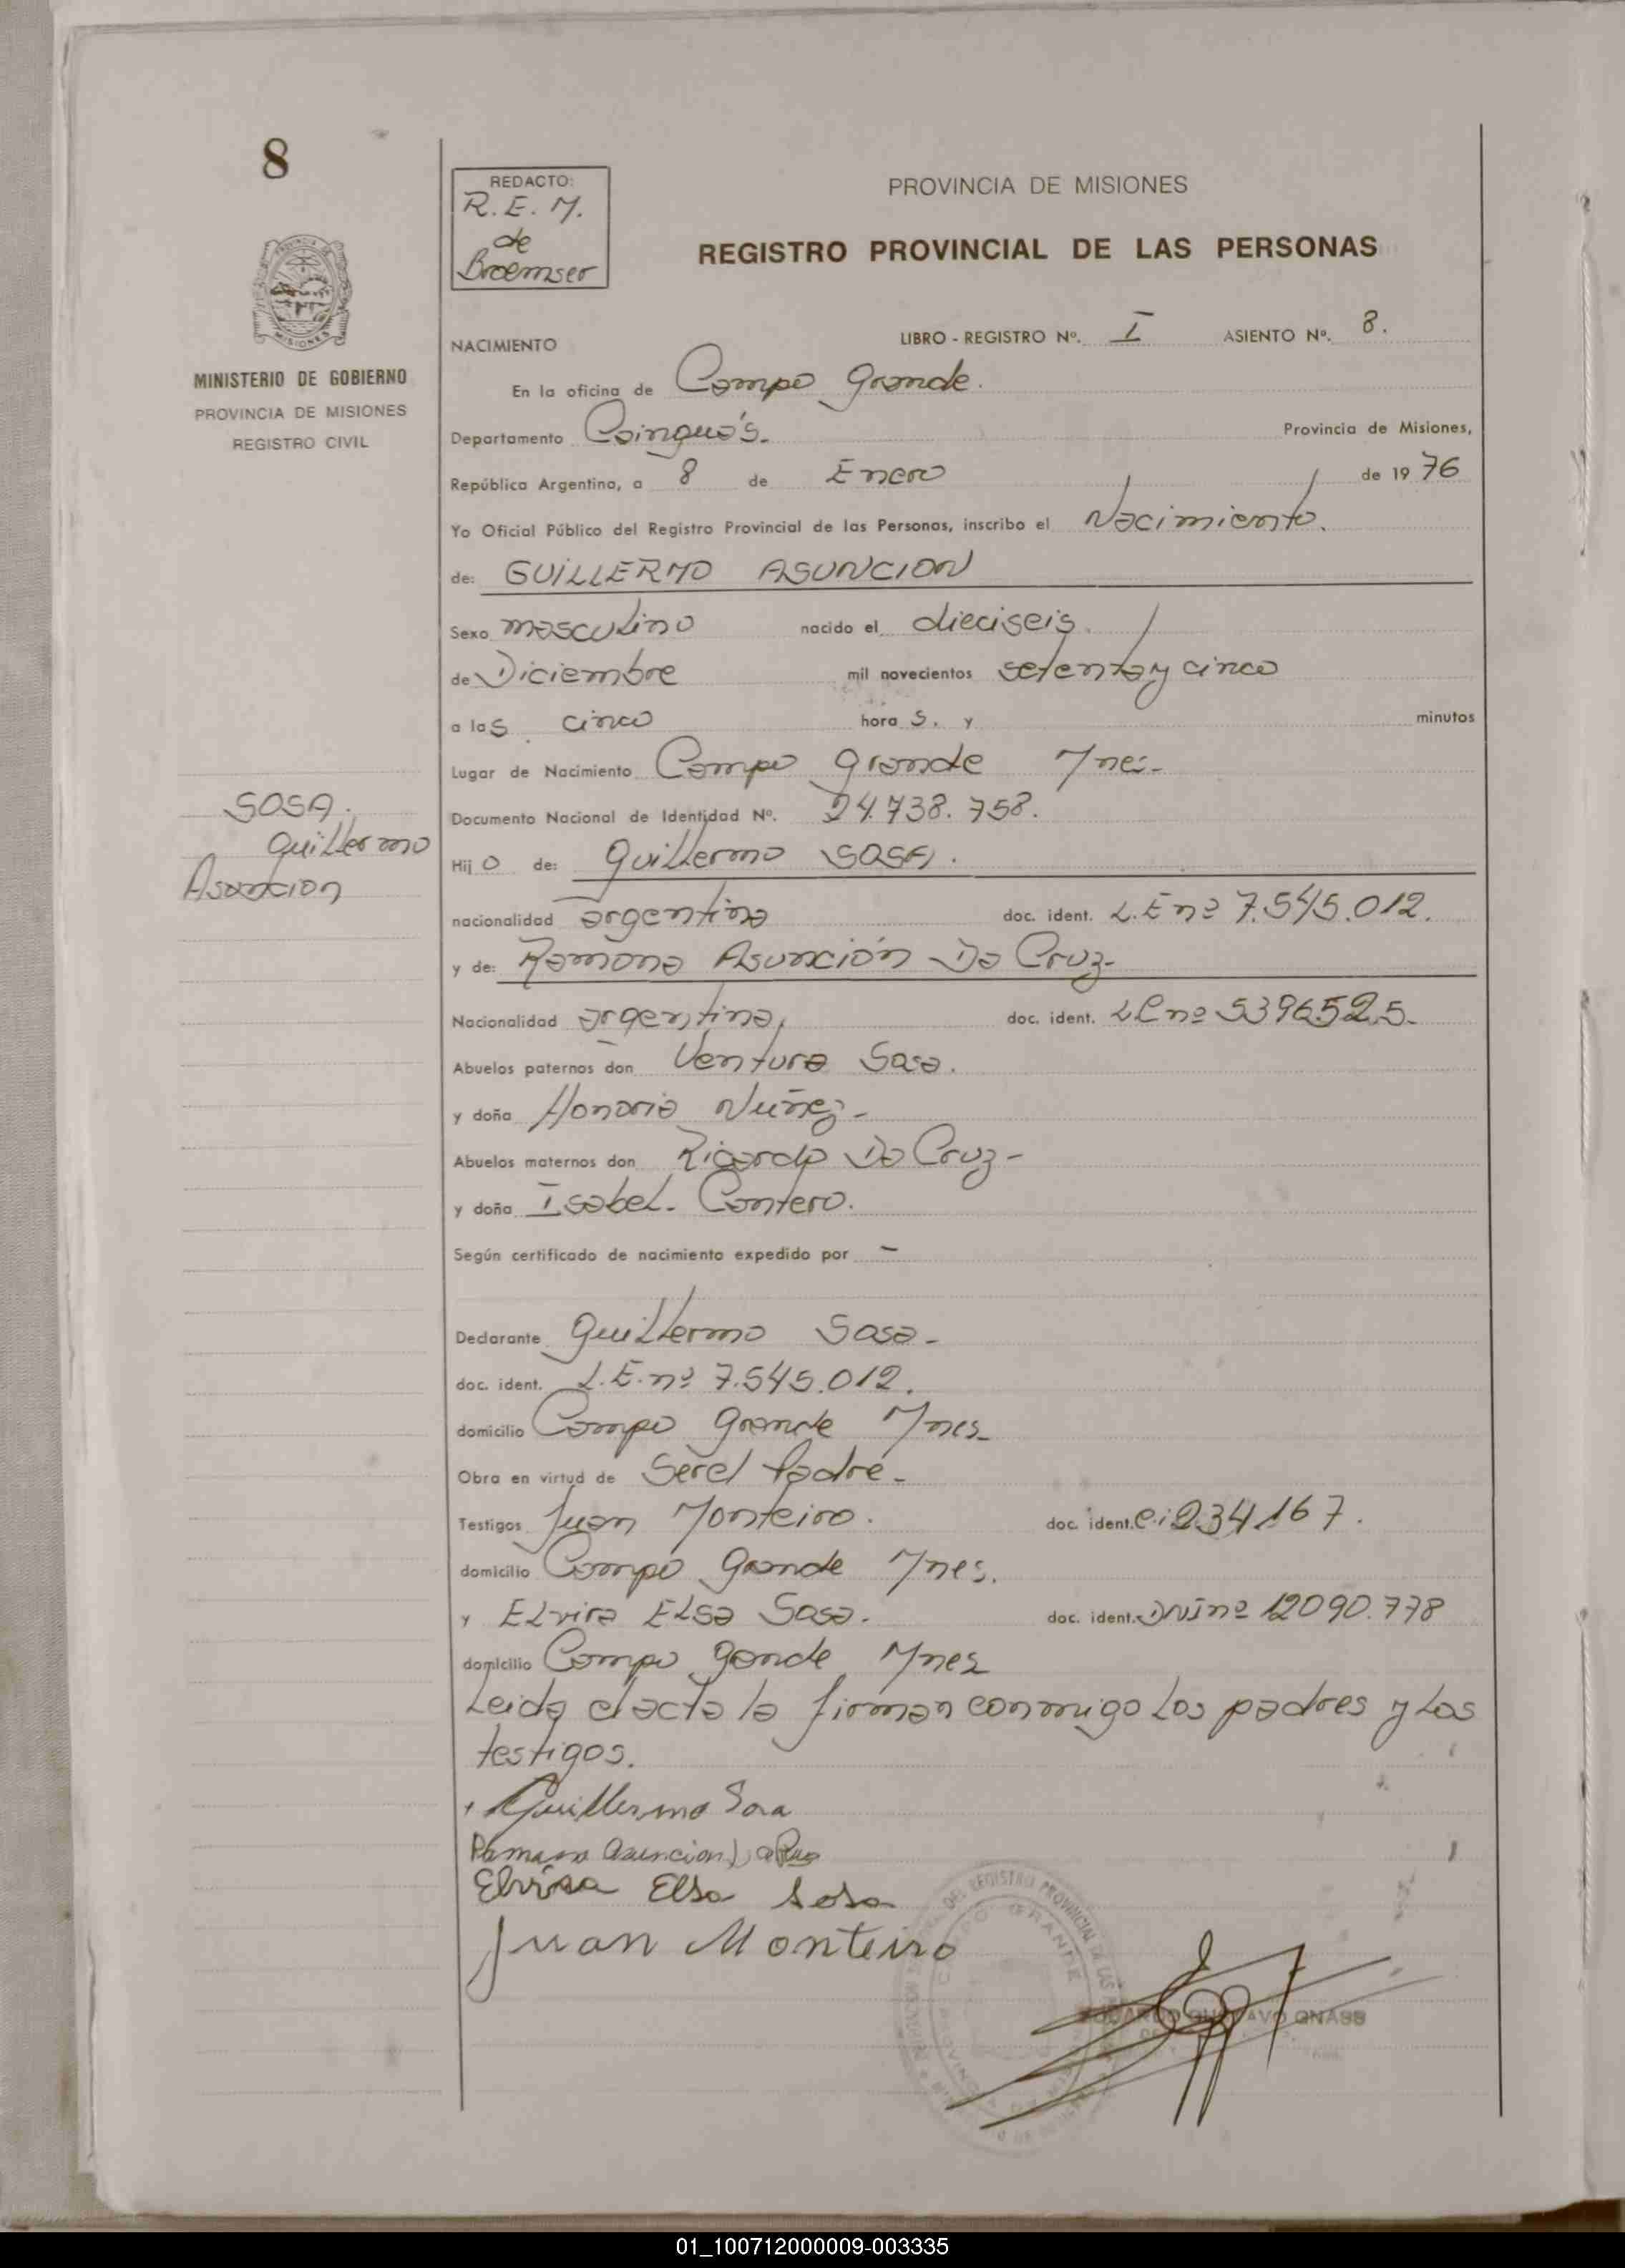 8
REDACTO:
R.E.M.
de
Broemser
PROVINCIA DE MISIONES
REGISTRO PROVINCIAL DE LAS PERSONAS
MISIONES
MINISTERIO DE GOBIERNO
PROVINCIA DE MISIONES
REGISTRO CIVIL
NACIMIENTO
LIBRO - REGISTRO Nº. I ASIENTO Nº. 8.
En la oficina de Campo Grande.
Departamento Cainguás. Provincia de Misiones,
República Argentina, a 8 de Enero de 1976
Yo Oficial Público del Registro Provincial de las Personas, inscribo el Nacimiento.
de: GUILLERMO ASUNCION
Sexo masculino nacido el dieciseis.
de Diciembre mil novecientos setenta y cinco
a las cinco hora s. y minutos
Lugar de Nacimiento Campo Grande Mnes-
Documento Nacional de Identidad Nº. 24.738.758.
SOSA.
Guillermo
Asuncion
Hij o de: Guillermo SOSA.
nacionalidad argentina doc. ident. L.E nº 7.545.012.
y de: Ramona Asunción Da Cruz-
Nacionalidad argentina, doc. ident. LC nº 5396.525-
Abuelos paternos don Ventura Sosa.
y doña Honoria Nuñez-
Abuelos maternos don Ricardo Da Cruz-
y doña Isabel. Contero.
Según certificado de nacimiento expedido por -
Declarante Guillermo Sosa-
doc. ident. L.E. nº 7.545.012.
domicilio Campo Grande Mnes-
Obra en virtud de Ser el Padre-
Testigos Juan Monteiro. doc. ident. C.i 234167.
domicilio Campo Grande Mnes.
y ELvira ELsa Sosa. doc. ident. DNI nº 12090.778
domicilio Campo gande Mnes
Leida el acta la firman conmigo los padres y los
testigos.
Guillermo Sosa
Ramona Asuncion Da Cruz
Elvira Elsa Sosa
Juan Monteiro
DEL REGISTRO PROVINCIAL DE LAS
CAMPO GRANDE
EDUARDO GUSTAVO GNASS
01_100712000009-003335